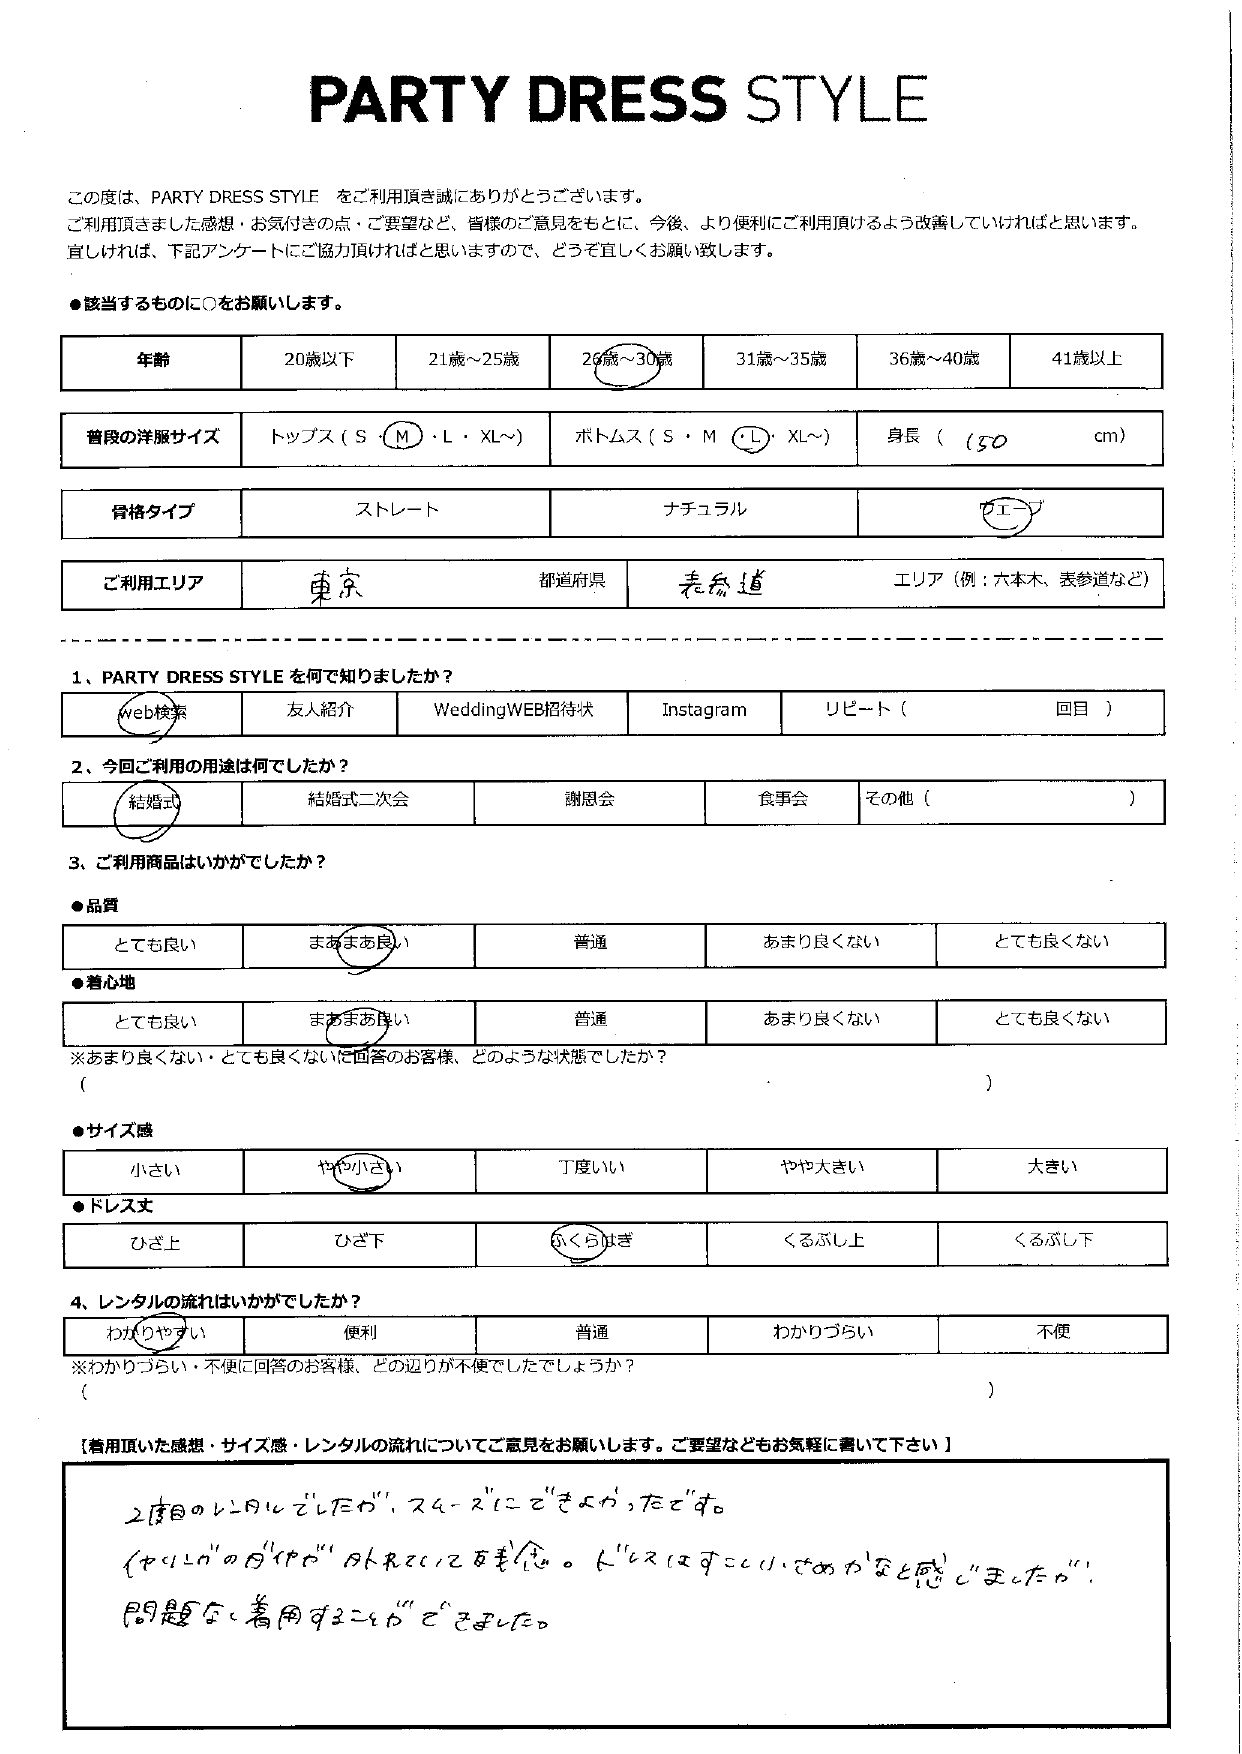 PARTY DRESS STYLE
この度は、PARTY DRESS STYLE をご利用頂き誠にありがとうございます。
ご利用頂きました感想・お気付きの点・ご要望など、皆様のご意見をもとに、今後、より便利にご利用頂けるよう改善していければと思います。
宜しければ、下記アンケートにご協力頂ければと思いますので、どうぞ宜しくお願い致します。
●該当するものに○をお願いします。
年齢 20歳以下 21歳～25歳 26歳～30歳 31歳～35歳 36歳～40歳 41歳以上
普段の洋服サイズ トップス ( S ・ M ・ L ・ XL～) ボトムス ( S ・ M ・ L ・ XL～) 身長 ( 150 cm)
骨格タイプ ストレート ナチュラル ウェーブ
ご利用エリア 東京 都道府県 表参道 エリア（例：六本木、表参道など）
1、PARTY DRESS STYLE を何で知りましたか？
web検索 友人紹介 WeddingWEB招待状 Instagram リピート（ 回目 ）
2、今回ご利用の用途は何でしたか？
結婚式 結婚式二次会 謝恩会 食事会 その他（ ）
3、ご利用商品はいかがでしたか？
●品質
とても良い まあまあ良い 普通 あまり良くない とても良くない
●着心地
とても良い まあまあ良い 普通 あまり良くない とても良くない
※あまり良くない・とても良くないに回答のお客様、どのような状態でしたか？
( )
●サイズ感
小さい やや小さい 丁度いい やや大きい 大きい
●ドレス丈
ひざ上 ひざ下 ふくらはぎ くるぶし上 くるぶし下
4、レンタルの流れはいかがでしたか？
わかりやすい 便利 普通 わかりづらい 不便
※わかりづらい・不便に回答のお客様、どの辺りが不便でしたでしょうか？
( )
【着用頂いた感想・サイズ感・レンタルの流れについてご意見をお願いします。ご要望などもお気軽に書いて下さい 】
2度目のレンタルでしたが、スムーズにできよかったです。
イヤリングのダイヤが外れていて残念。ドレスはすこし小さめかなと感じましたが、
問題なく着用することができました。